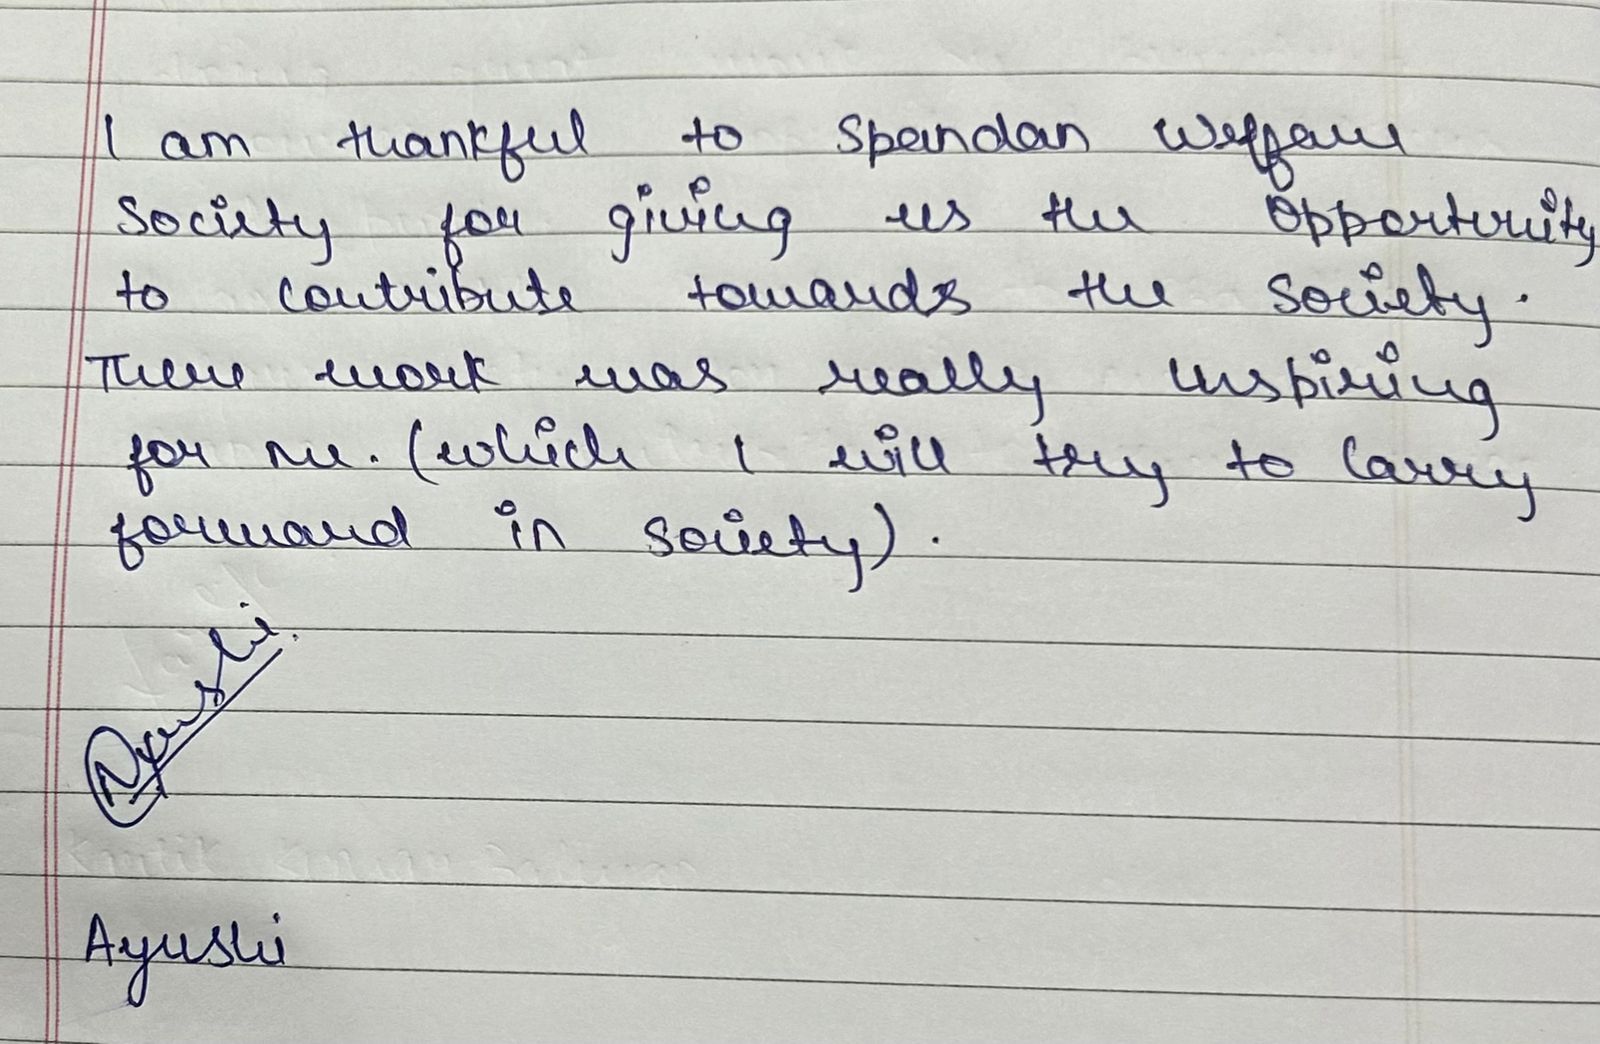 I am thankful to Spandan Welfare
Society for giving us the opportunity
to contribute towards the society.
There work was really inspiring
for me. (which I will try to carry
forward in society).
Ayushi.
Ayushi